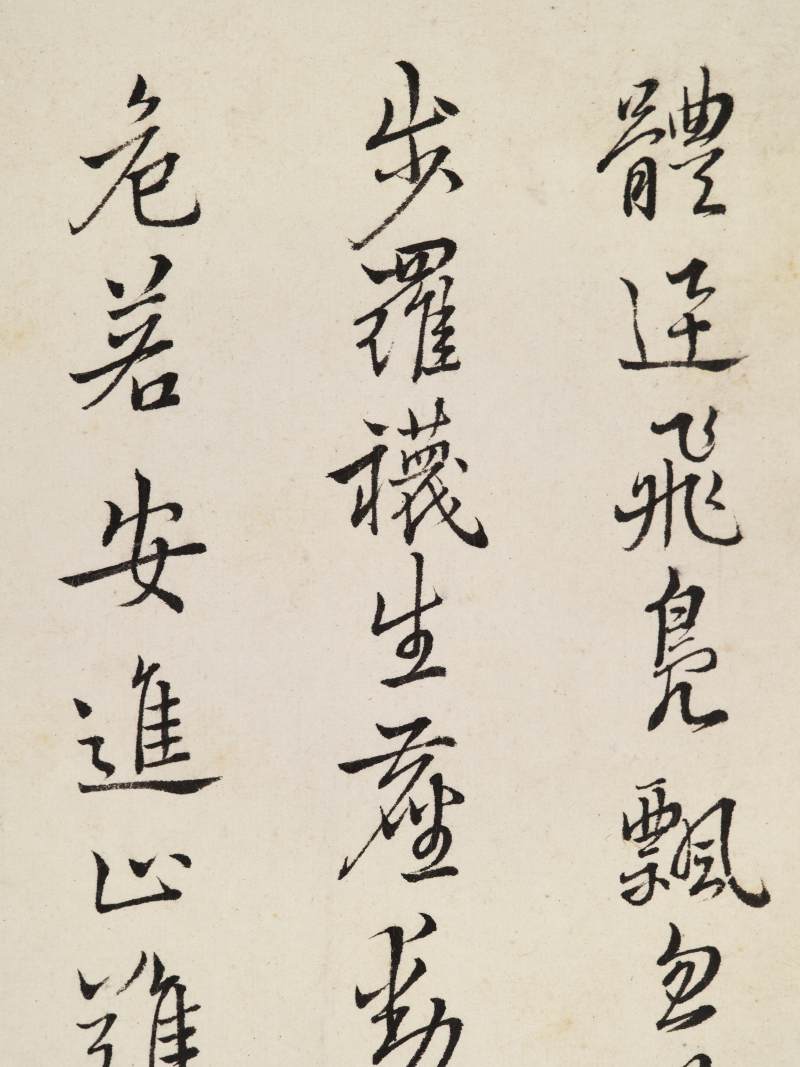 體迅飛鳧飄忽
步羅襪生塵動
危若安進止難